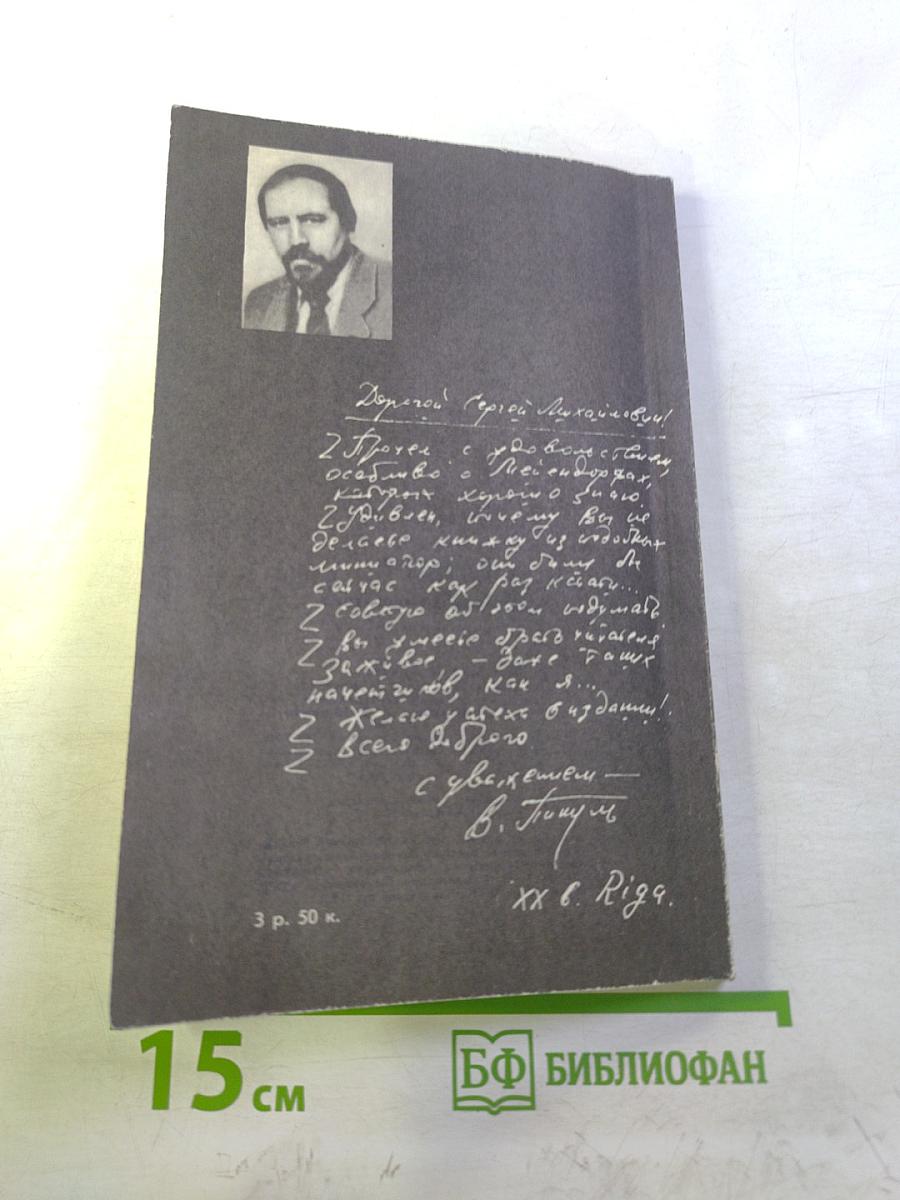 Дорогой Сергей Михайлович!
Z Прочел с удовольствием,
особливо о Мейендорфах,
которых хорошо знаю.
Z Удивлен, почему Вы не
делаете книжку из подобных
миниатюр; они были бы
сейчас как раз кстати...
Z Советую об этом подумать.
Z Вы умеете брать читателя
за живое, – даже таких
начетчиков, как я...
Z Желаю успеха в издании!
Z Всего доброго
с уважением —
В. Пикуль
XX в. Riga.
3 р. 50 к.
15 см
БФ БИБЛИОФАН